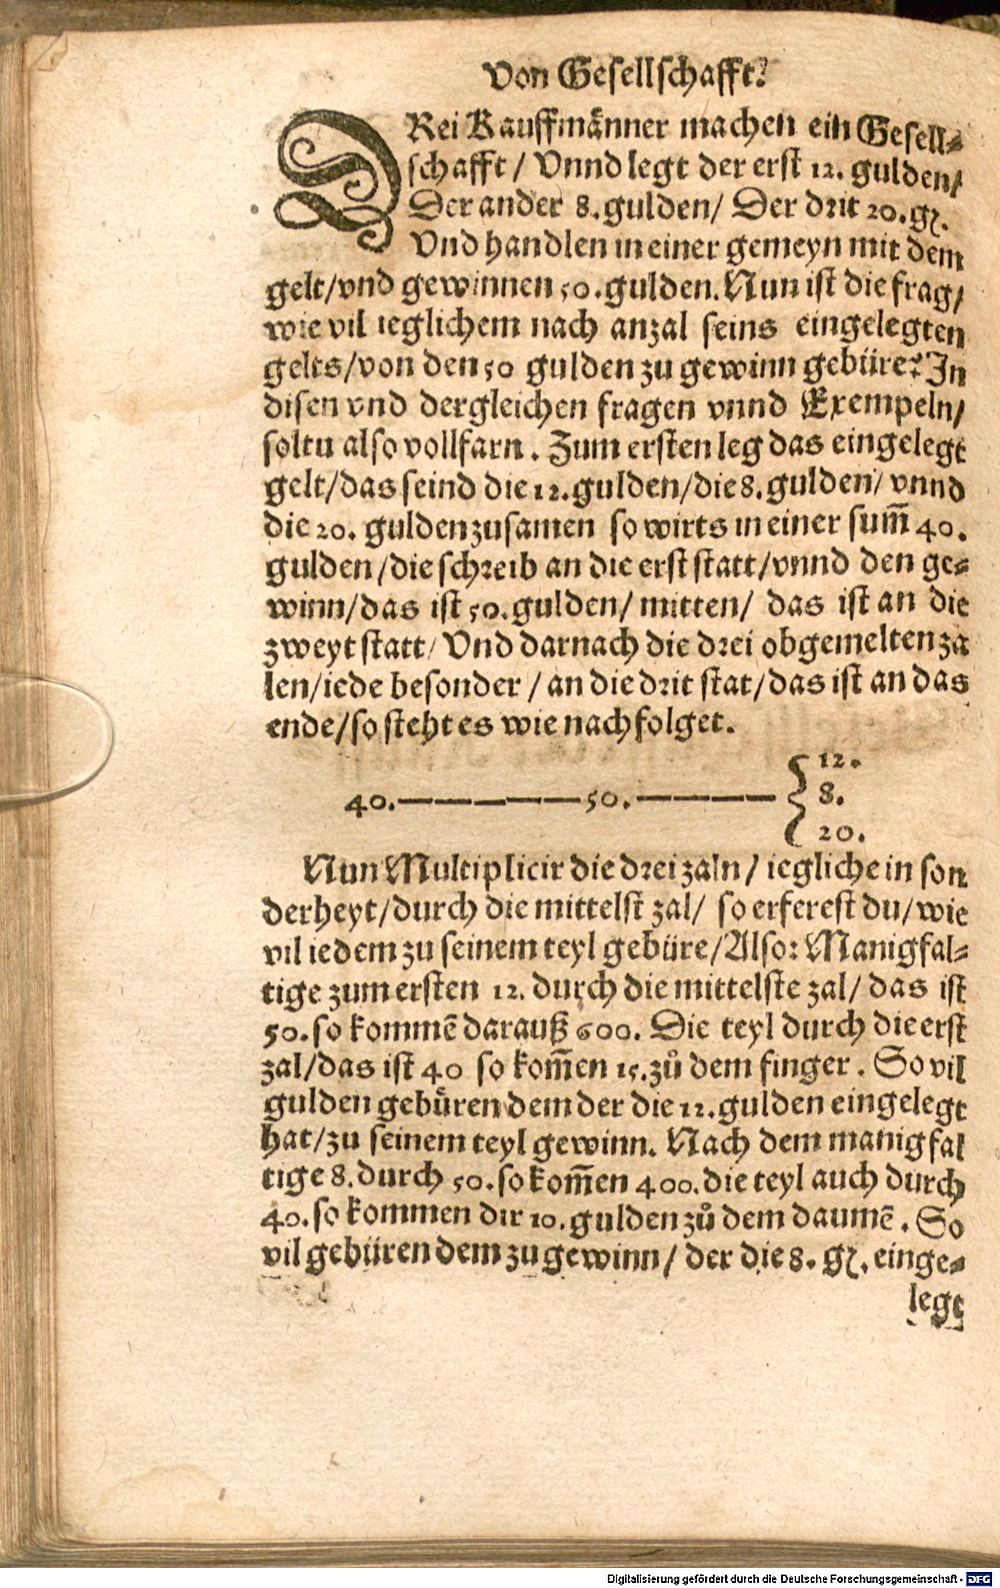 Von Gesellschafft?
DRei Kauffmänner machen ein Gesell⸗
schafft / Vnnd legt der erst 12. gulden/
Der ander 8. gulden/ Der drit 20. gl.
Vnd handlen in einer gemeyn mit dem
gelt/vnd gewinnen 50. gulden. Nun ist die frag/
wie vil ieglichem nach anzal seins eingelegten
gelts/von den 50 gulden zu gewinn gebüre? In
disen vnd dergleichen fragen vnnd Exempeln/
soltu also vollfarn. Zum ersten leg das eingelegt
gelt/das seind die 12. gulden/die 8. gulden/ vnnd
die 20. gulden zusamen so wirts in einer sum̃ 40.
gulden/die schreib an die erst statt/vnnd den ge⸗
winn/das ist 50. gulden/ mitten/ das ist an die
zweyt statt/ Vnd darnach die drei obgemelten za
len/iede besonder / an die drit stat/das ist an das
ende/so steht es wie nachfolget.
12.
40.—————50.————— { 8.
20.
Nun Multiplicir die drei zaln / iegliche in son
derheyt/durch die mittelst zal/ so erferest du/wie
vil iedem zu seinem teyl gebüre/Also: Manigfal⸗
tige zum ersten 12. durch die mittelste zal/ das ist
50. so kommẽ darauß 600. Die teyl durch die erst
zal/das ist 40 so kom̃en 15. zů dem finger. So vil
gulden gebüren dem der die 12. gulden eingelegt
hat/zu seinem teyl gewinn. Nach dem manigfal
tige 8. durch 50. so kom̃en 400. die teyl auch durch
40. so kommen dir 10. gulden zů dem daumẽ. So
vil gebüren dem zu gewinn/ der die 8. gl. einge⸗
legt
Digitalisierung gefördert durch die Deutsche Forschungsgemeinschaft - DFG